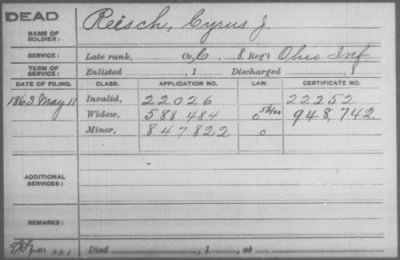 DEAD
NAME OF SOLDIER: Reisch, Cyrus J.
SERVICE: Late rank, Co. C, 8 Reg't Ohio Inf
TERM OF SERVICE: Enlisted , 1 Discharged , 1
DATE OF FILING. CLASS. APPLICATION NO. LAW. CERTIFICATE NO.
1863 May 11 Invalid, 22026 22252
Widow, 588484 948,742.
Minor, 847822 0
ADDITIONAL SERVICES:
REMARKS:
Died , 1 , at